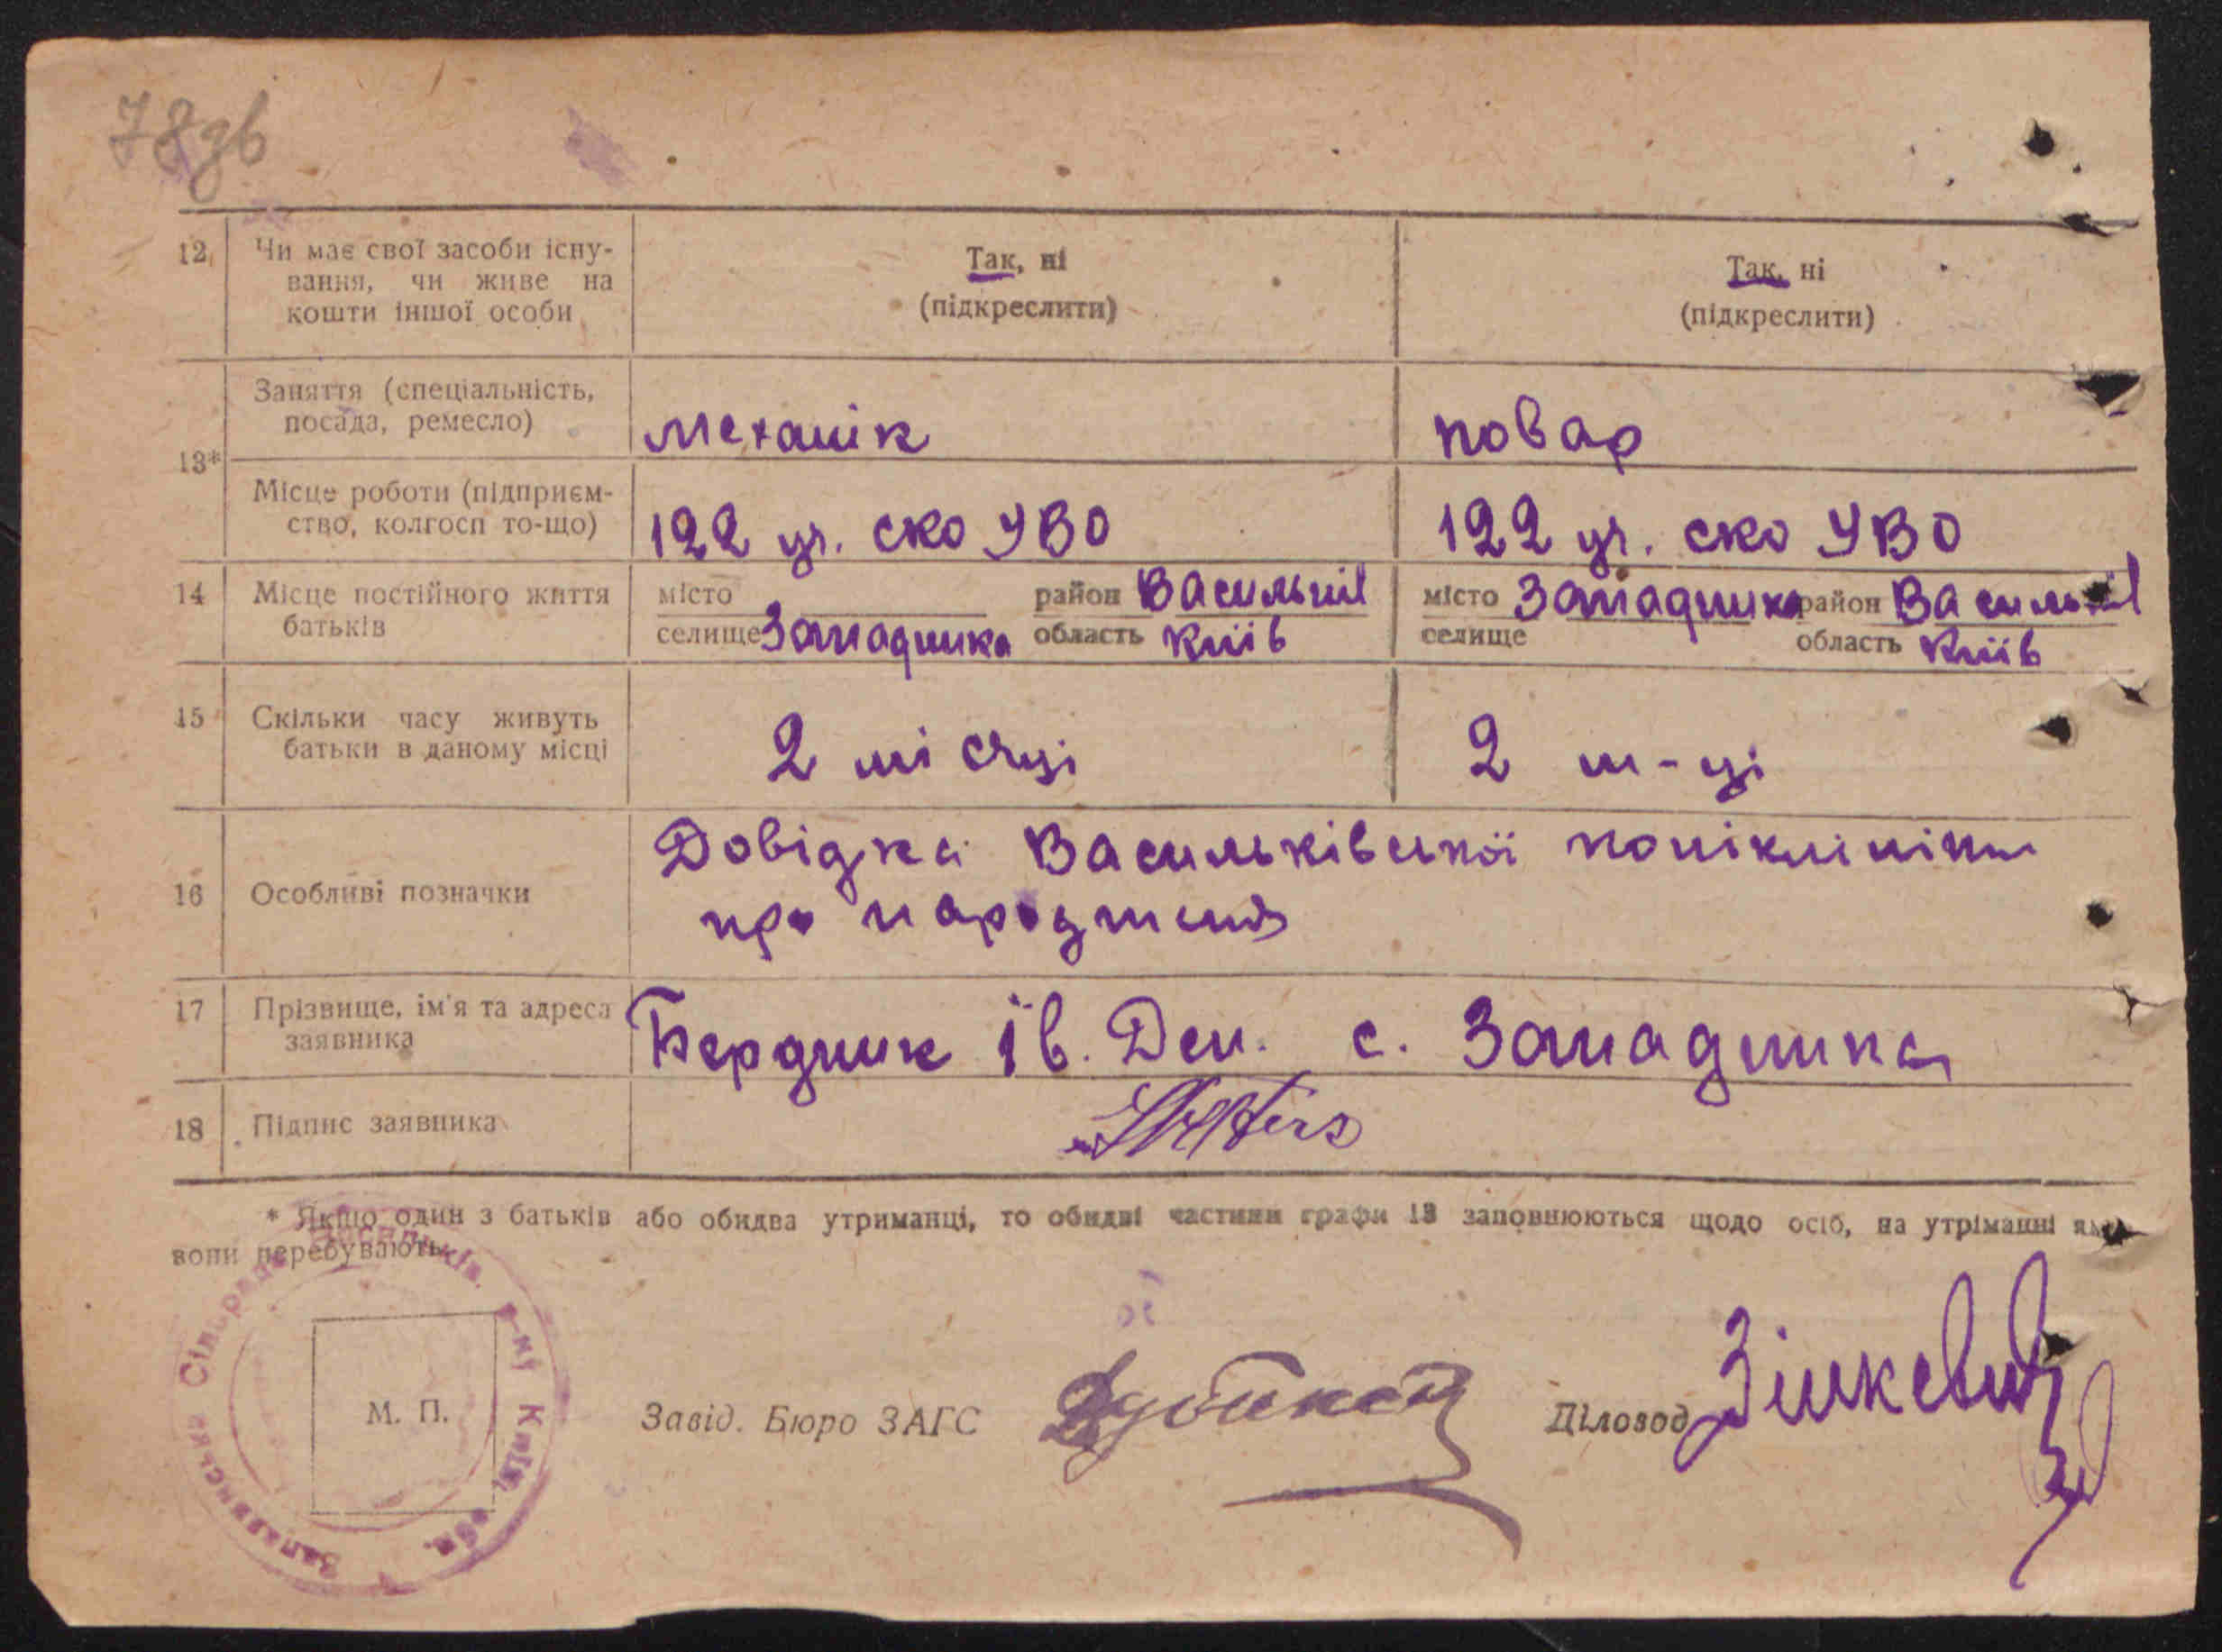 78зв
12 Чи має свої засоби існу-
вання, чи живе на
кошти іншої особи
Так, ні
(підкреслити)
Так, ні
(підкреслити)
13*
Заняття (спеціальність,
посада, ремесло)
механік
повар
Місце роботи (підприєм-
ство, колгосп то-що)
122 уч. ско УВО
122 уч. ско УВО
14 Місце постійного життя
батьків
місто район Васильків
селище Западинка область Київ
місто Западинка район Васильків
селище область Київ
15 Скільки часу живуть
батьки в даному місці
2 місяці
2 м-ці
16 Особливі позначки
Довідка Васильківської поліклініки
про народження
17 Прізвище, ім'я та адреса
заявника
Бердник Ів. Ден. с. Западинка
18 Підпис заявника
* Якщо один з батьків або обидва утриманці, то обидві частини графи 13 заповнюються щодо осіб, на утріманні яких
вони перебувають.
Западинська Сільрада Васильків. р-ну Київ. обл.
М. П.
Завід. Бюро ЗАГС
Діловод Зінкевич